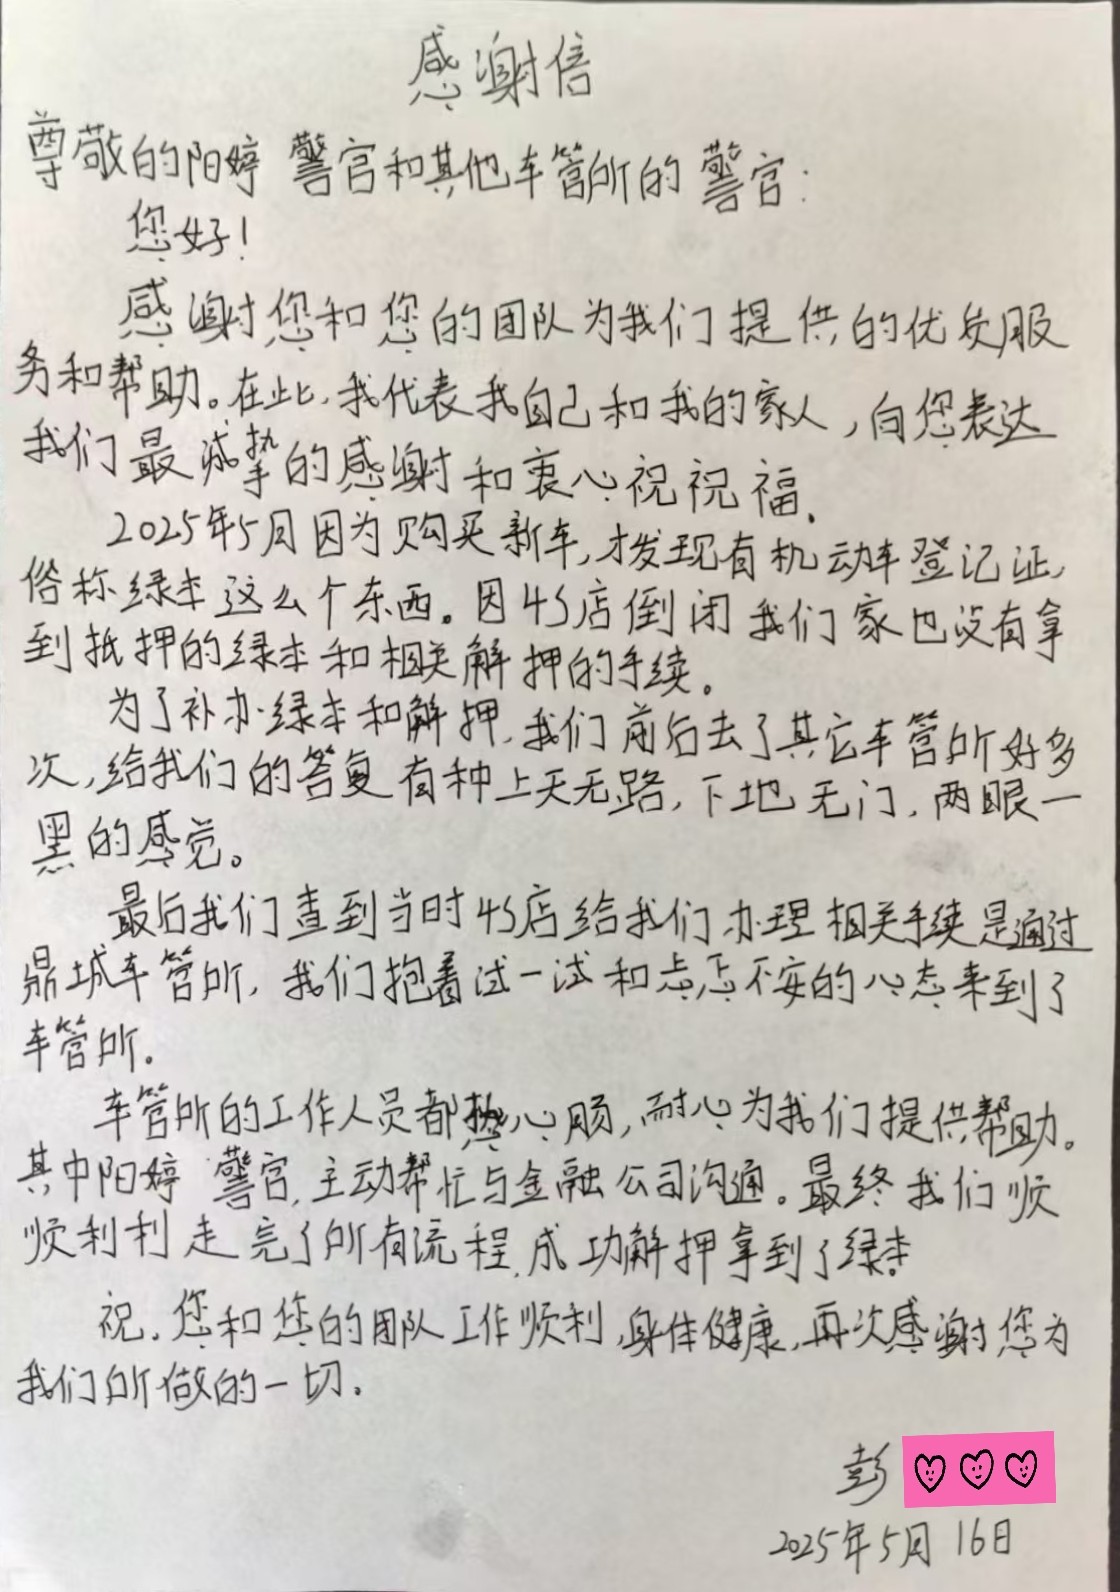 感谢信
尊敬的阳婷警官和其他车管所的警官:
您好!
感谢您和您的团队为我们提供的优质服
务和帮助。在此,我代表我自己和我的家人,向您表达
我们最诚挚的感谢和衷心祝祝福.
2025年5月因为购买新车,才发现有机动车登记证,
俗称绿本这么个东西。因4S店倒闭我们家也没有拿
到抵押的绿本和相关解押的手续。
为了补办绿本和解押,我们前后去了其它车管所好多
次,给我们的答复有种上天无路,下地无门,两眼一
黑的感觉。
最后我们查到当时4S店给我们办理相关手续是通过
鼎城车管所,我们抱着试一试和忐忑不安的心态来到了
车管所.
车管所的工作人员都热心肠,耐心为我们提供帮助。
其中阳婷警官,主动帮忙与金融公司沟通。最终我们顺
顺利利走完了所有流程,成功解押拿到了绿本.
祝.您和您的团队工作顺利,身体健康,再次感谢您为
我们所做的一切.
彭
2025年5月16日